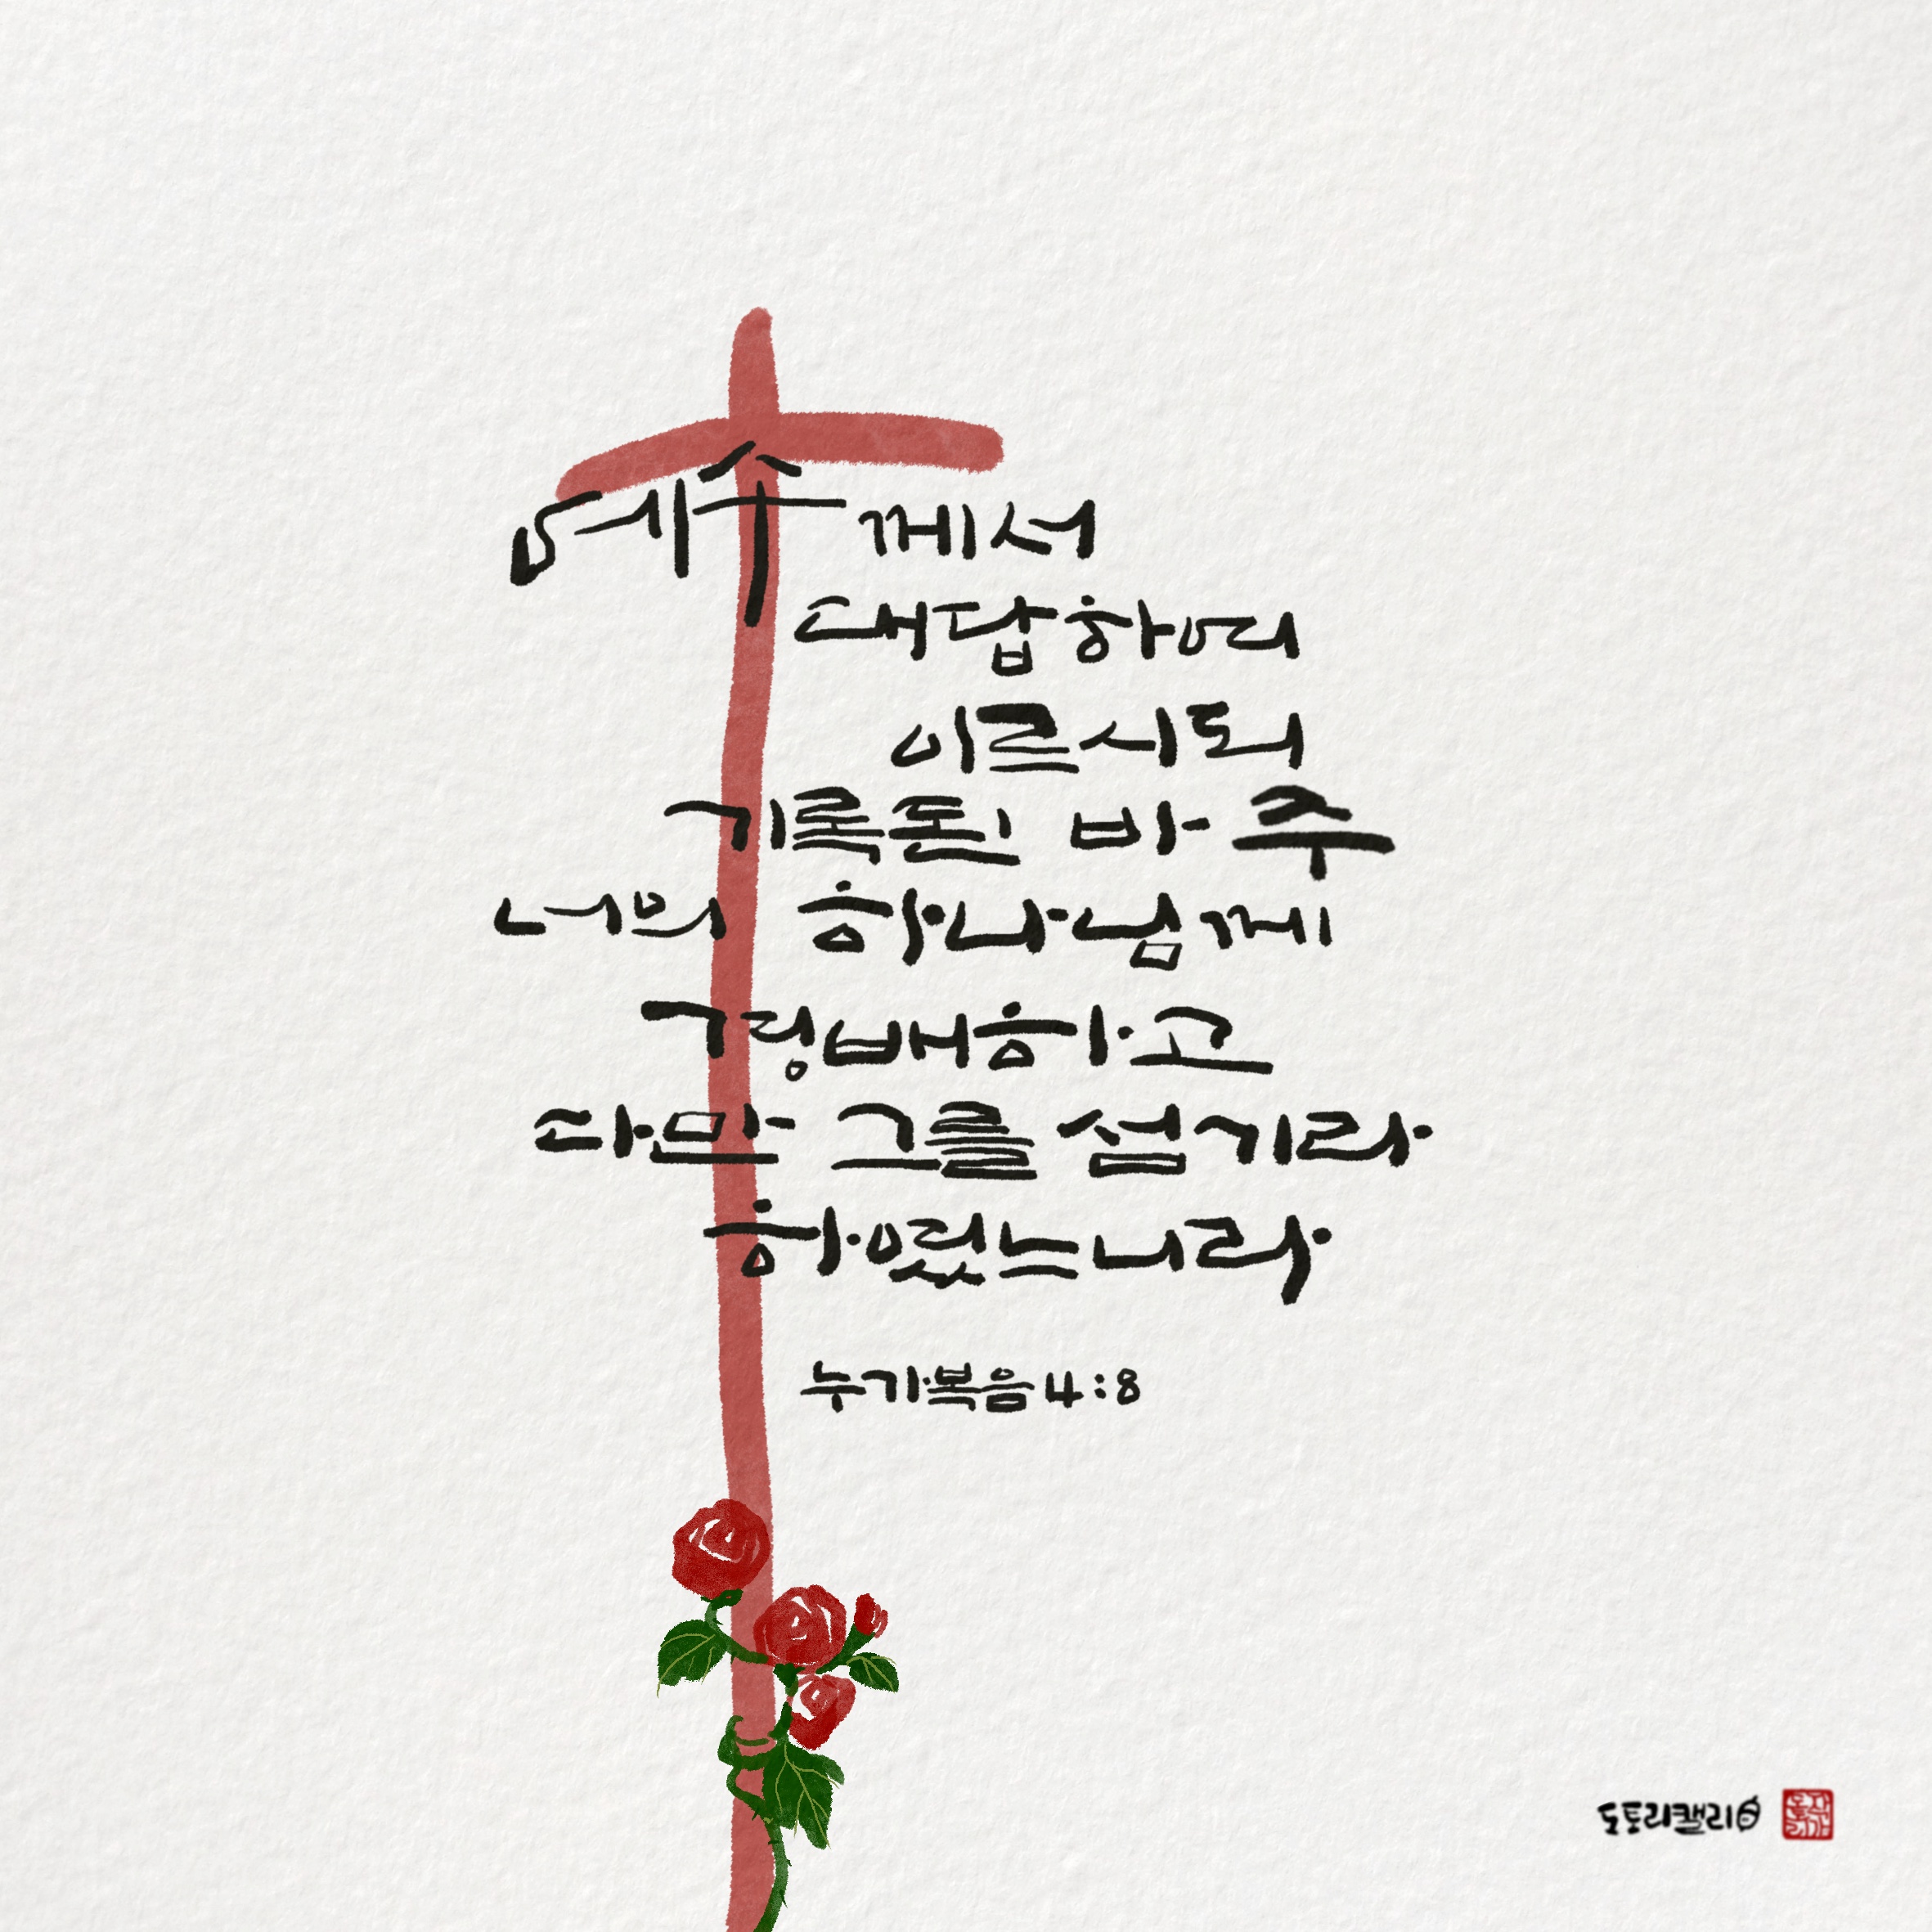 예수께서
대답하여
이르시되
기록된 바 주
너의 하나님께
경배하고
다만 그를 섬기라
하였느니라
누가복음 4:8
도토리캘리